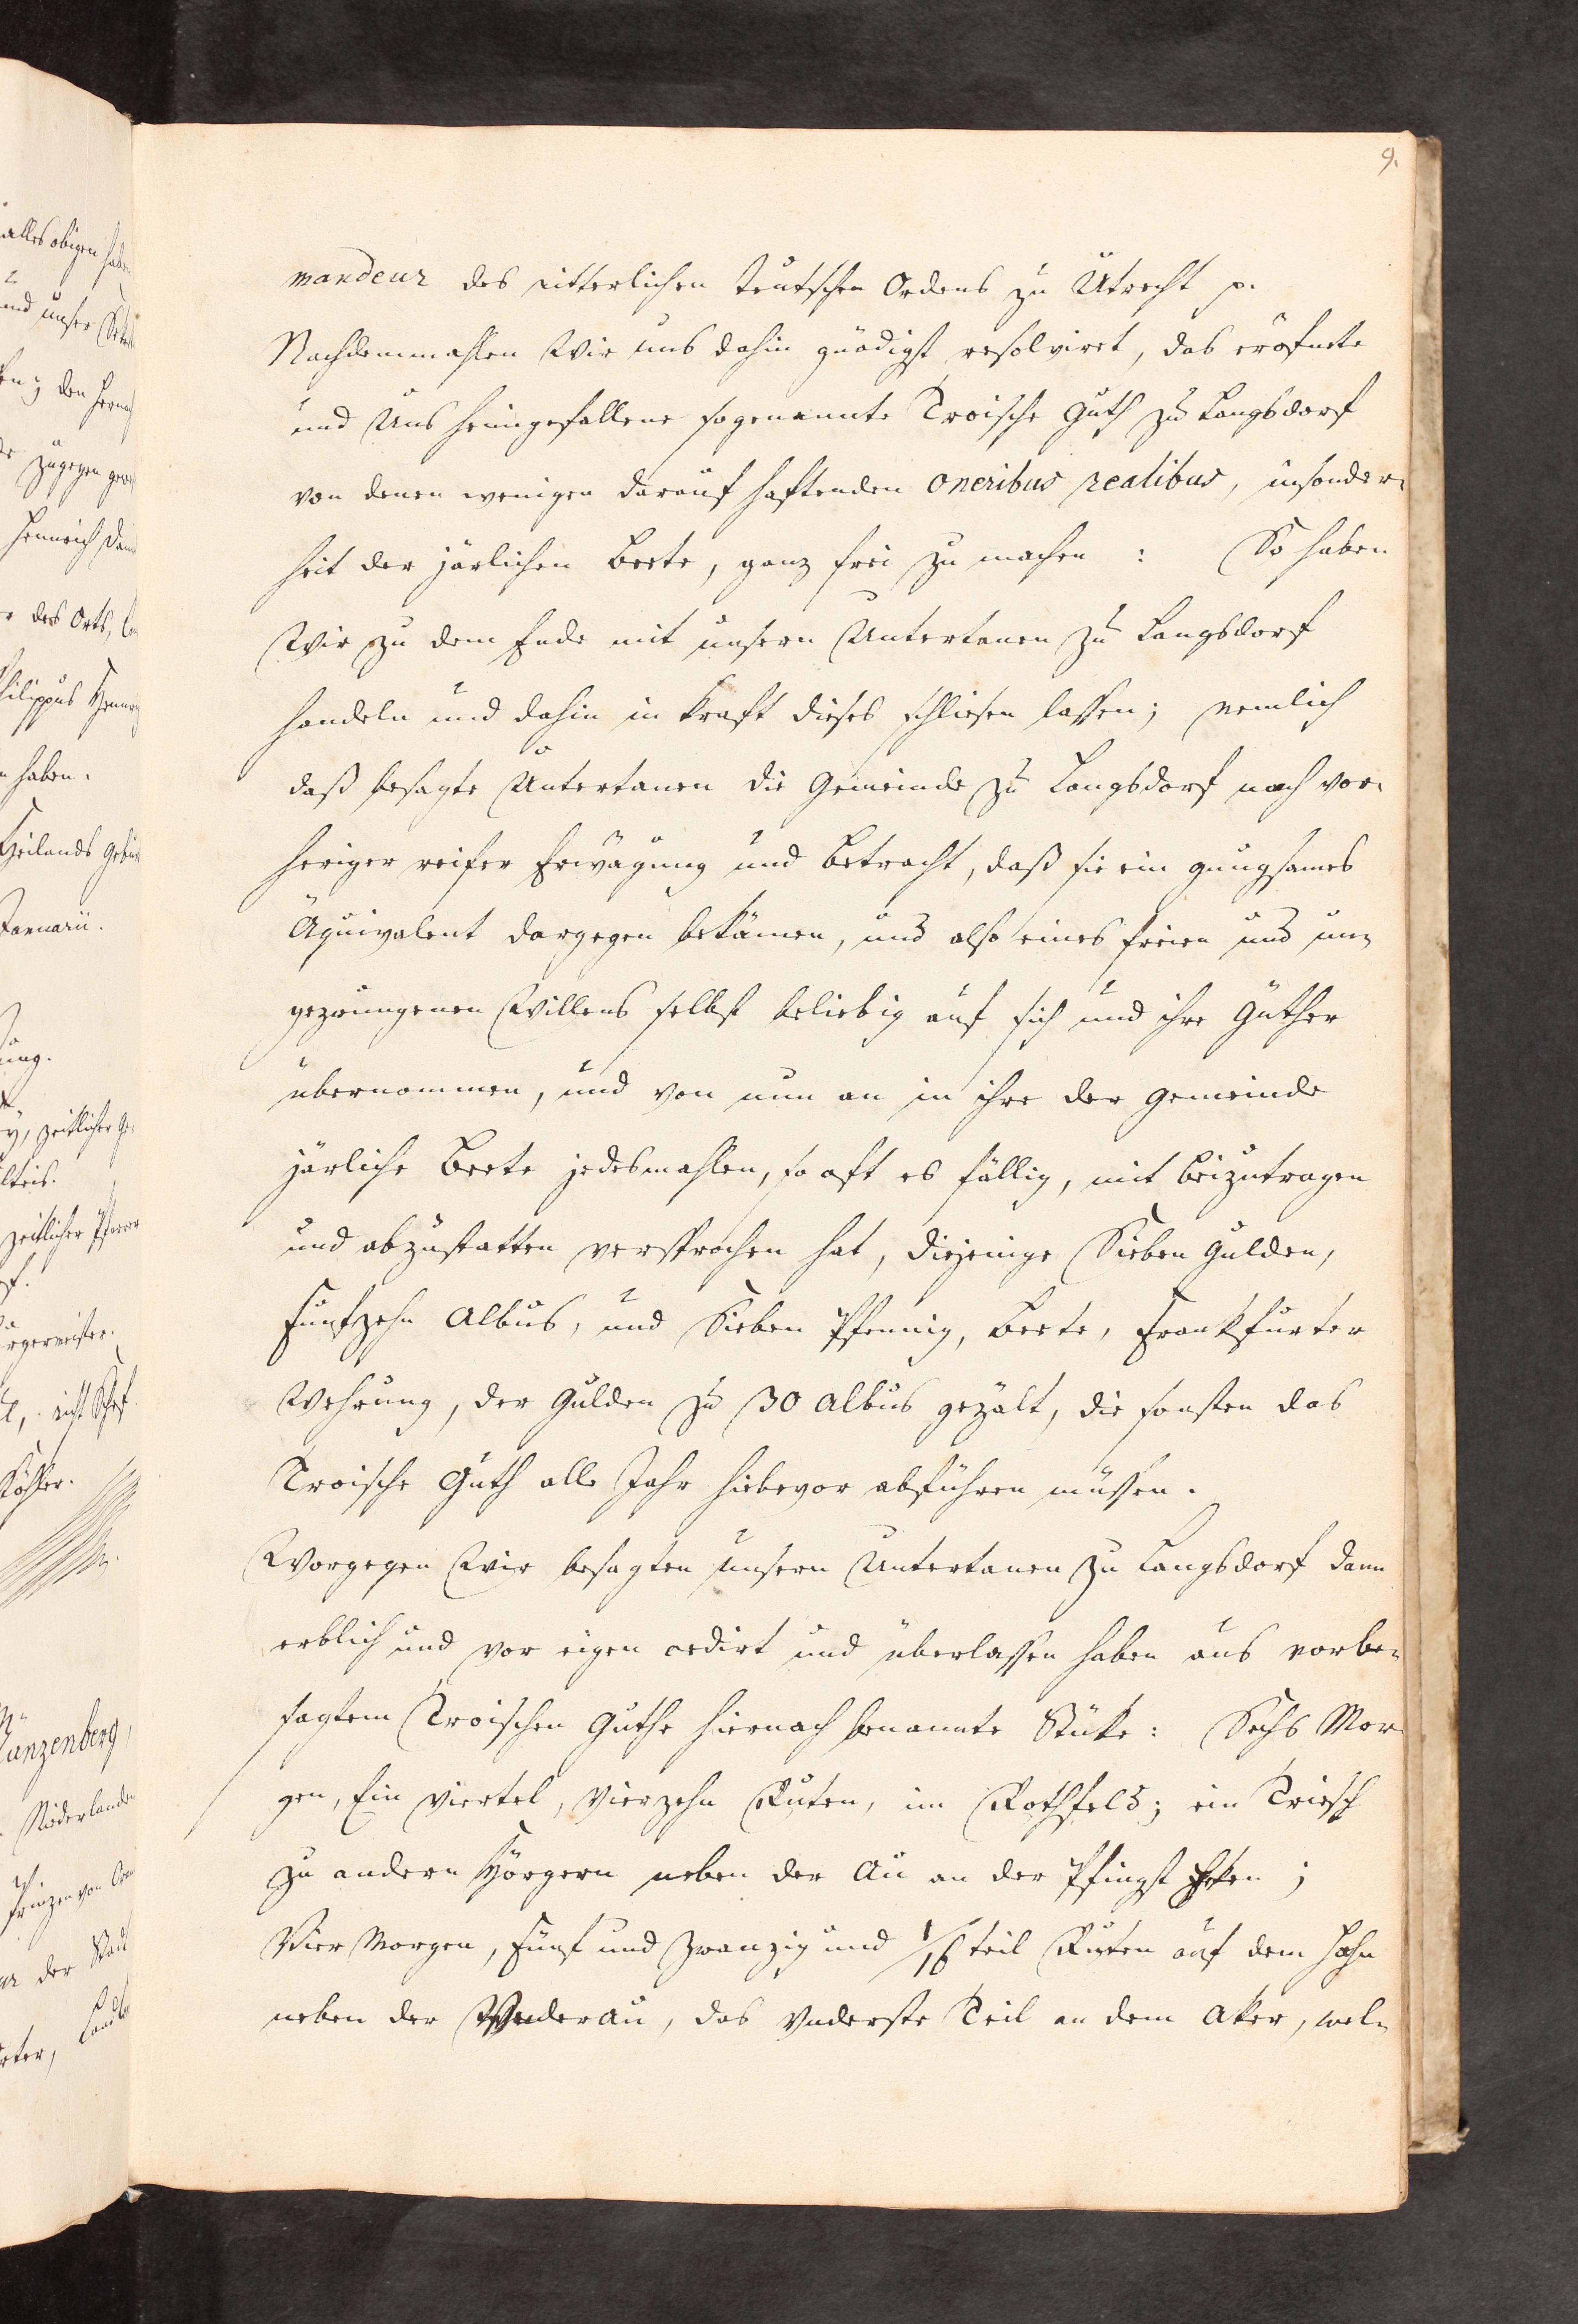 9.
mandeur des ritterlichen teutschen Ordens zu Utrecht p.
Nachdemmahlen Wir uns dahin gnädigst resolviret, das eröfnete
und Uns heimgefallene sogenannte Troische Guth zu Langsdorf
von denen wenigen darauf haftenden oneribus realibus, insonder-
heit der järlichen Beete, ganz frei zu machen: So haben
Wir zu dem Ende mit unsern Untertanen zu Langsdorf
handeln und dahin in kraft dieses schliesen lassen; nemlich
daß besagte Untertanen die Gemeinde zu Langsdorf nach vor-
heriger reifer Erwägung und Betracht, daß sie ein gnugsames
Äquivalent dargegen bekämen, und also eines freien und un-
gezwungenen Willens selbst beliebig auf sich und ihre Güther
übernommen, und von nun an in ihre der Gemeinde
järliche Beete jedesmahlen, so oft es fällig, mit beizutragen
und abzustatten versprochen hat, diejenige Sieben Gulden,
Funfzehn Albus, und Sieben Pfennig, Beete, Frankfurter
Wehrung, der Gulden zu 30 Albus gezält, die sonsten das
Troische Guth alle Jahr hiebevor abführen müssen.
Worgegen Wir besagten unsern Untertanen zu Langsdorf dann
erblich und vor eigen cedirt und überlassen haben aus vorbe-
sagtem Troischen Guthe hiernach benannte Stüke: Sechs Mor-
gen, Ein Viertel, Vierzehn Ruten, im Rothfeld; ein Triesch
zu andern Hörgern neben der Au an der Pfingst
Vier Morgen, Fünf und zwanzig und 1/16 teil Ruten auf dem Hahn
neben der Wederau, das Vnderste Teil an dem Aker, wel-